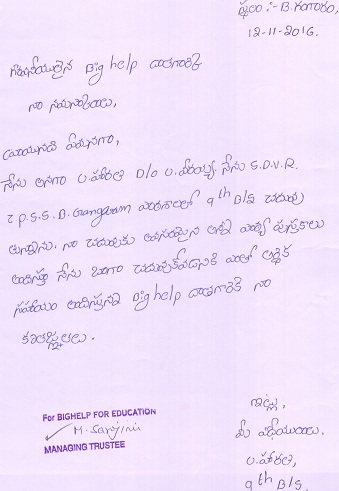 స్థలం :- B. గంగారం,
12-11-2016.
గౌరవనీయులైన Big help దాతగారికి
నా నమస్కారాలు,
వ్రాయునది ఏమనగా,
నేను అనగా U. హారతి D/o U. వీరయ్య. నేను S.D.V.R.
Z.P.S.S. B. Gangaram పాఠశాలలో 9th B/S చదువు
తున్నాను. నా చదువుకు అవసరమైన అన్ని పుస్తకాలు
అందిస్తూ నేను బాగా చదువుకోవడానికి ఎంతో ఆర్థిక
సహాయం అందిస్తున్న Big help దాతగారికి నా
కృతజ్ఞతలు.
ఇట్లు,
మీ విధేయురాలు.
U. హారతి,
9th B/S.
For BIGHELP FOR EDUCATION
M. Sarojini
MANAGING TRUSTEE